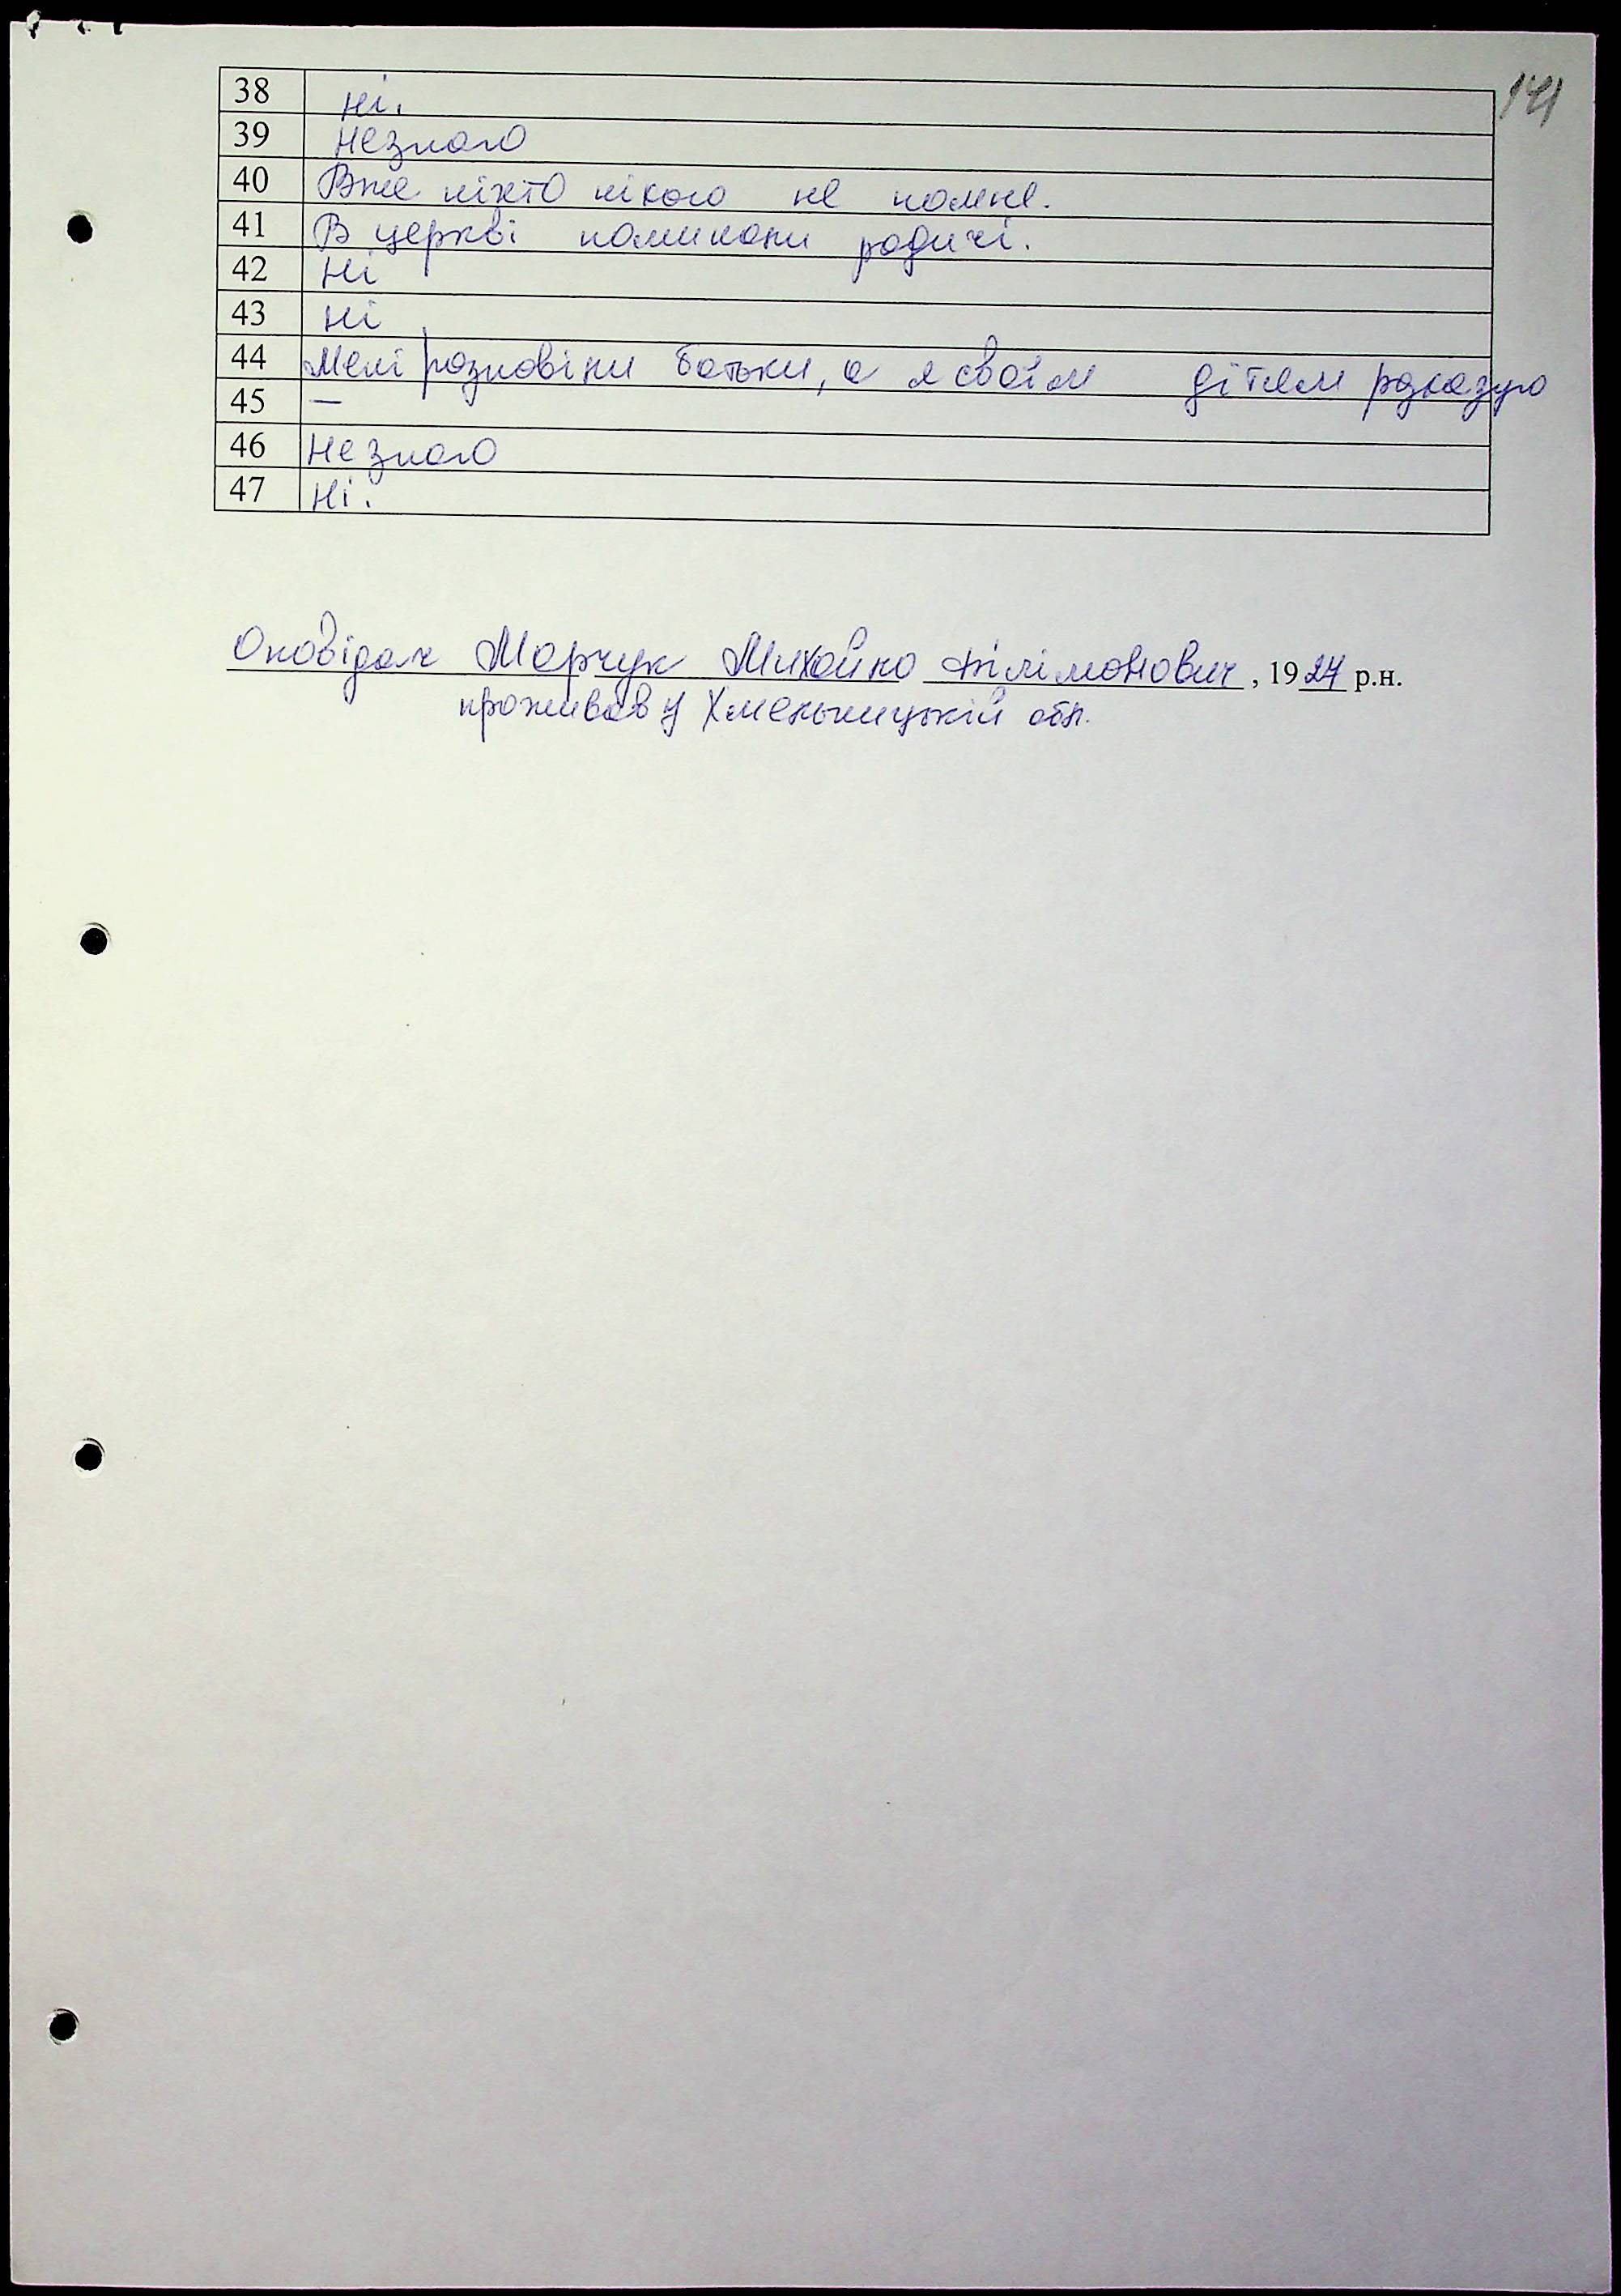 141
38 ні.
39 Незнаю
40 Вже ніхто нікого не помне.
41 В церкві поминали родичі.
42 Ні
43 ні
44 Мені розповіли батьки, а я своїм дітям розказую
45 —
46 Не знаю
47 Ні.
Оповідач Марчук Михайло Філімонович, 1924 р.н.
проживав у Хмельницькій обл.